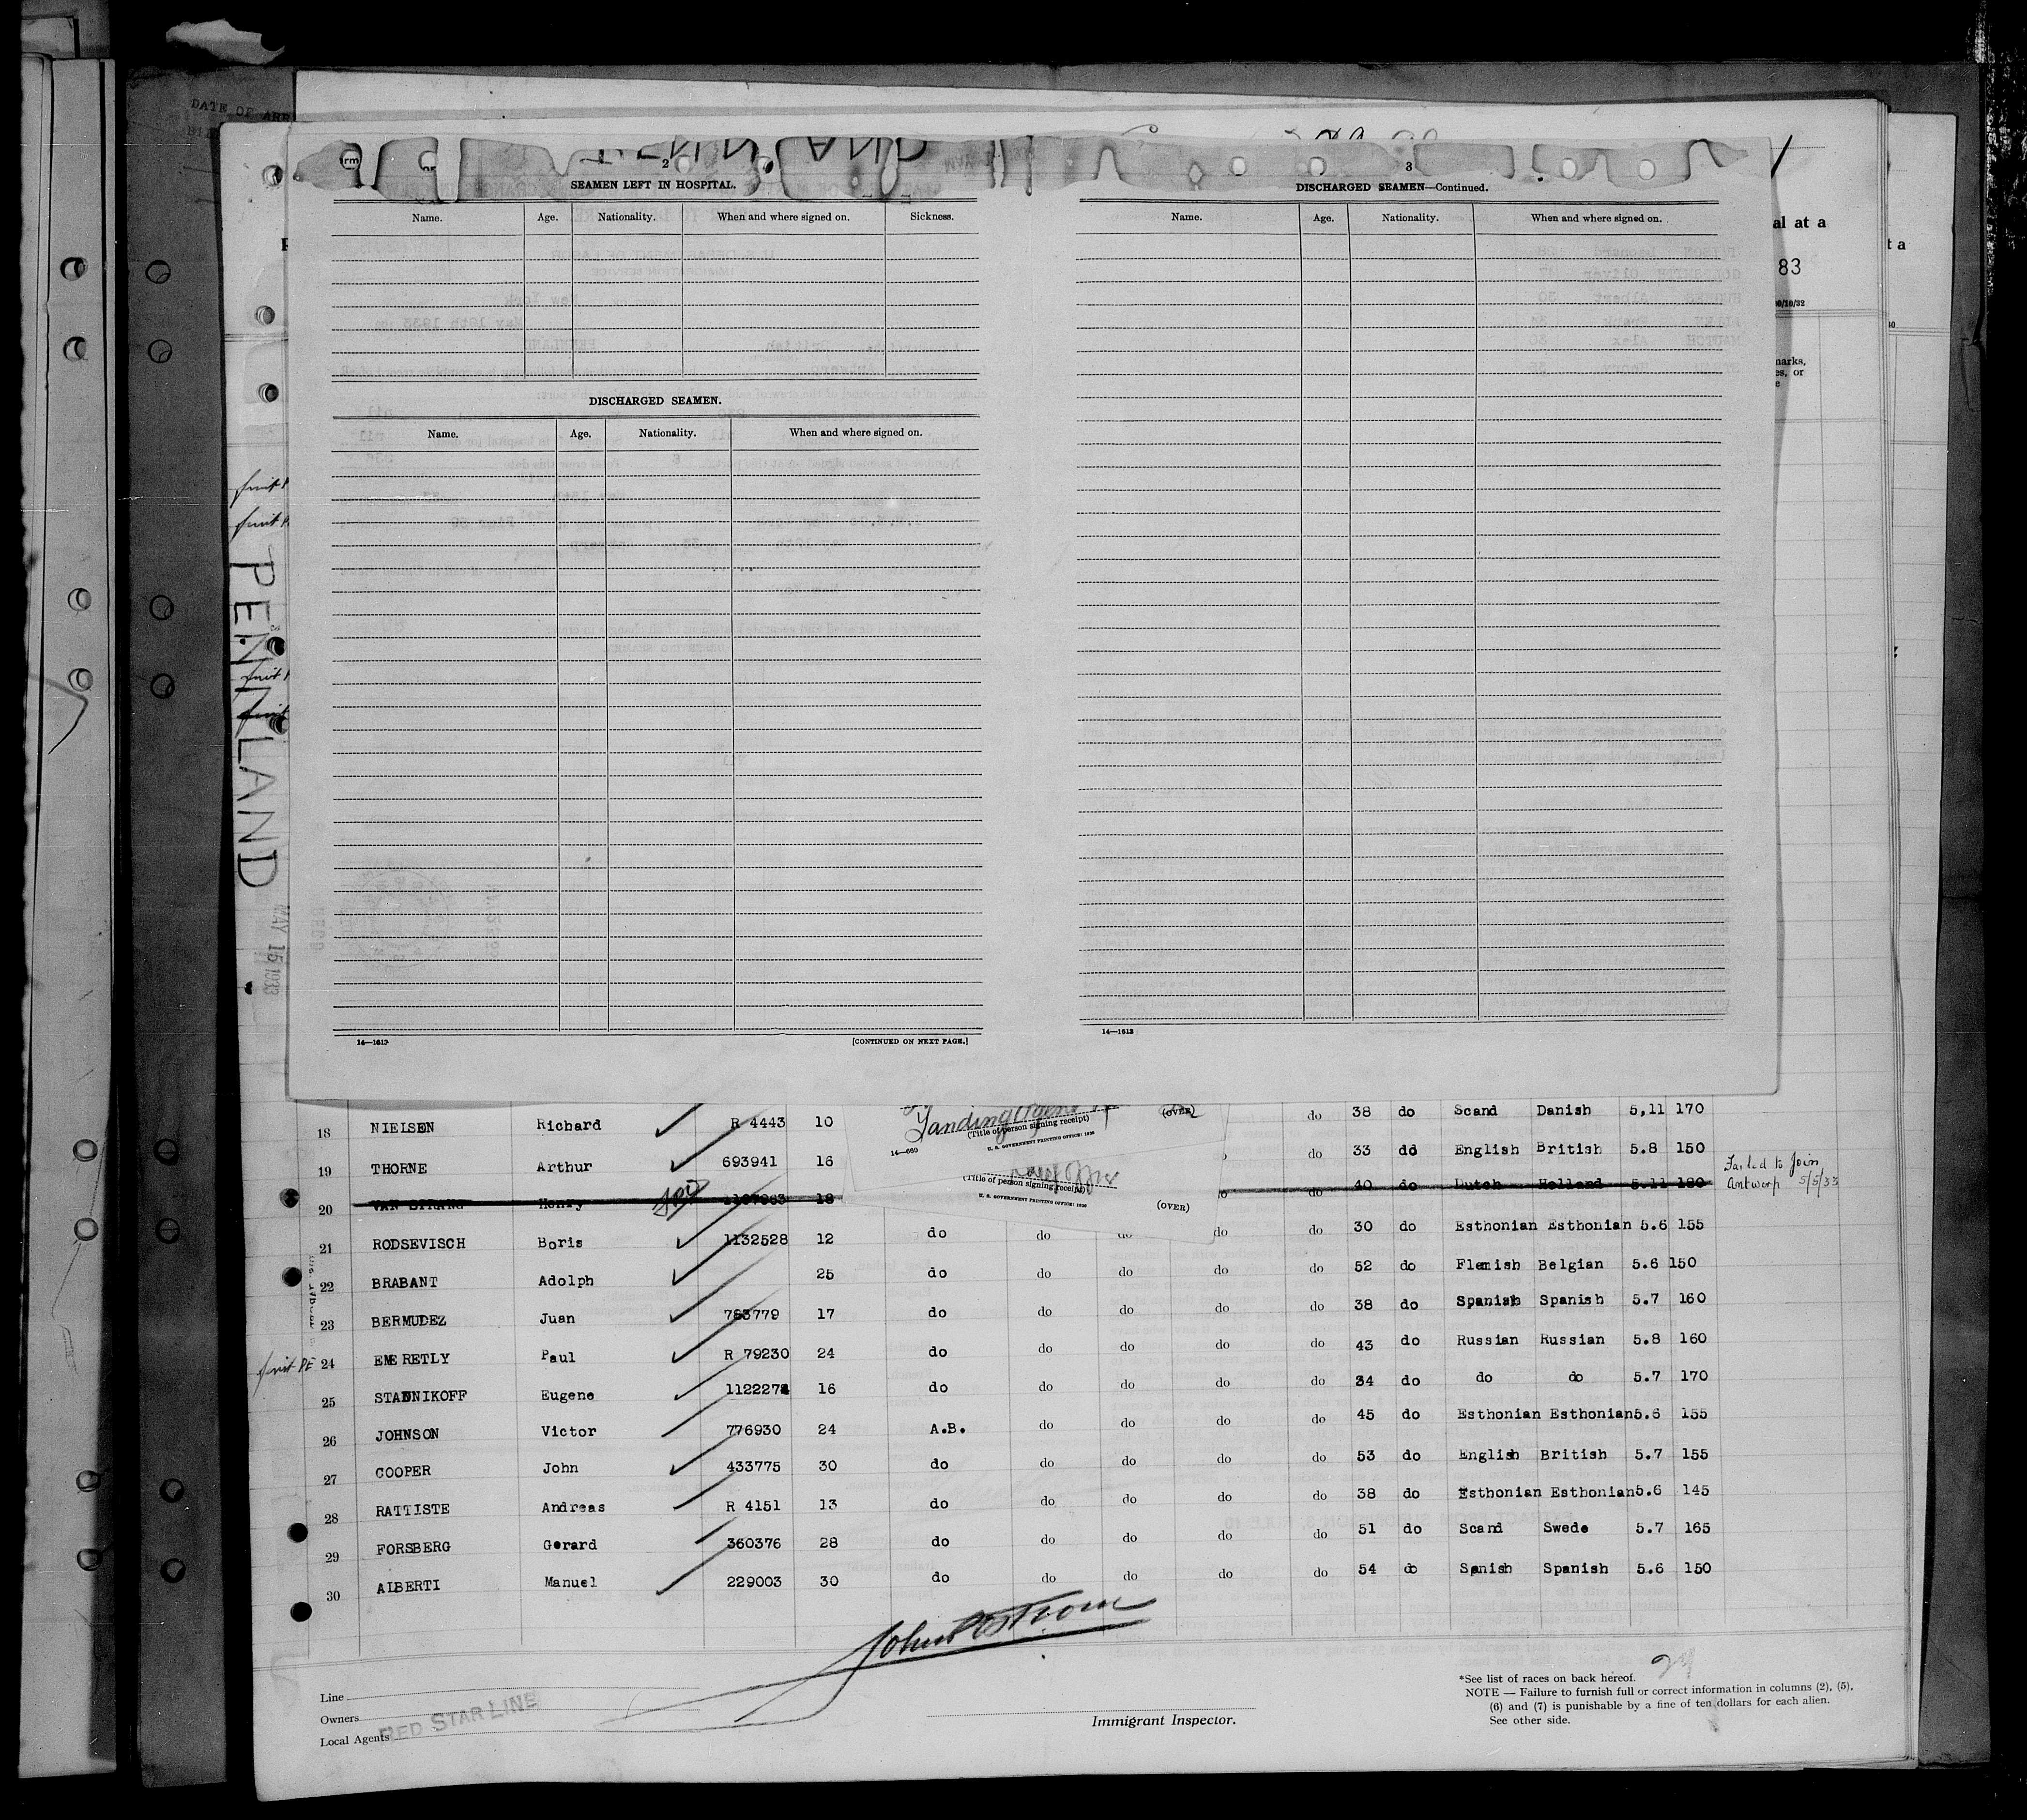 DATE OF ARR
2
SEAMEN LEFT IN HOSPITAL.
Name. Age. Nationality. When and where signed on. Sickness.
DISCHARGED SEAMEN.
Name. Age. Nationality. When and where signed on.
14—1613
[CONTINUED ON NEXT PAGE.]
3
DISCHARGED SEAMEN—Continued.
Name. Age. Nationality. When and where signed on.
14—1613
al at a
t a
83
PENNLAND
MAY 15 1933
Landing Agent
(Title of person signing receipt)
(OVER)
14—660
U. S. GOVERNMENT PRINTING OFFICE: 1930
(Title of person signing receipt)
U. S. GOVERNMENT PRINTING OFFICE: 1930
(OVER)
18 NIELSEN Richard R 4443 10 do 38 do Scand Danish 5,11 170
19 THORNE Arthur 693941 16 do 33 do English British 5.8 150
20 VAN Henry 18 do 40 do Dutch Holland 5.11 180 Failed to Join
Antwerp 5/5/33
21 RODSEVISCH Boris 1132528 12 do do do do do 30 do Esthonian Esthonian 5.6 155
22 BRABANT Adolph 25 do do do do do 52 do Flemish Belgian 5.6 150
23 BERMUDEZ Juan 783779 17 do do do do do 38 do Spanish Spanish 5.7 160
24 EMERETLY Paul R 79230 24 do do do do do 43 do Russian Russian 5.8 160
25 STADNIKOFF Eugene 1122272 16 do do do do do 34 do do do 5.7 170
26 JOHNSON Victor 776930 24 A.B. do do do do 45 do Esthonian Esthonian 5.6 155
27 COOPER John 433775 30 do do do do do 53 do English British 5.7 155
28 RATTISTE Andreas R 4151 13 do do do do do 38 do Esthonian Esthonian 5.6 145
29 FORSBERG Gerard 360376 28 do do do do do 51 do Scand Swede 5.7 165
30 ALBERTI Manuel 229003 30 do do do do do 54 do Spnish Spanish 5.6 150
Line
Owners
Local Agents
RED STAR LINE
Immigrant Inspector.
*See list of races on back hereof.
NOTE — Failure to furnish full or correct information in columns (2), (5),
(6) and (7) is punishable by a fine of ten dollars for each alien.
See other side.